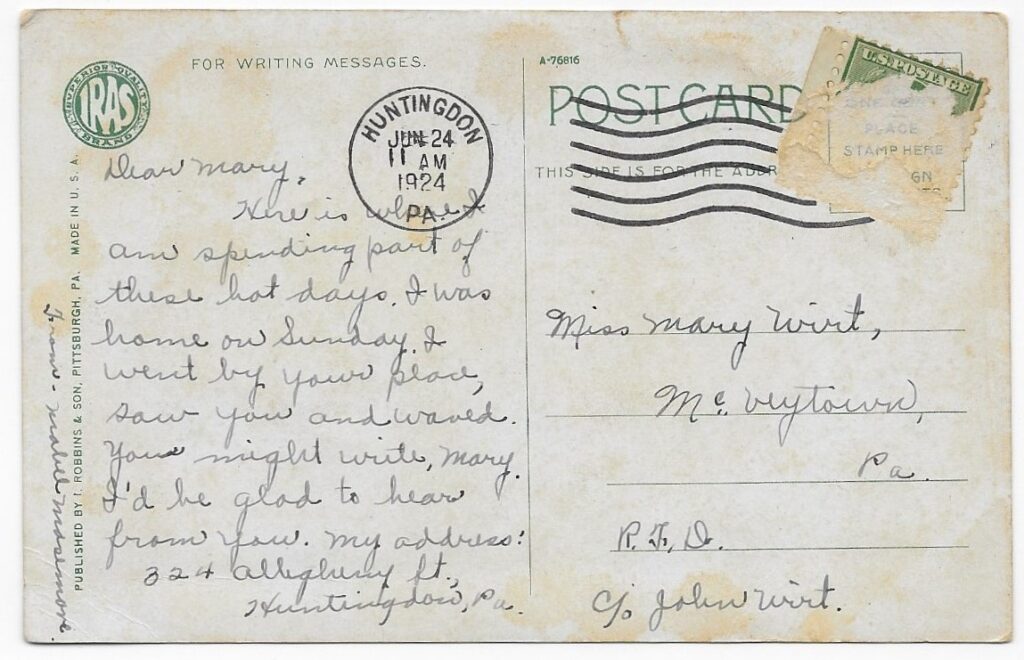 FOR WRITING MESSAGES.
SUPERIOR QUALITY
IRAS
BRAND
HUNTINGDON
JUN 24
11 AM
1924
PA.
Dear Mary,
Here is where I
am spending part of
these hot days. I was
home on Sunday. I
went by your place,
saw you and waved.
You might write, Mary.
I'd be glad to hear
from you. My address:
324 Allegheny St.,
Huntingdon, Pa.
From - Mabel Masemore.
PUBLISHED BY I. ROBBINS & SON, PITTSBURGH, PA. MADE IN U. S. A.
A-76816
POST CARD
THIS SIDE IS FOR THE ADDR
U.S. POSTAGE
ONE CENT
PLACE
STAMP HERE
GN
TS
Miss Mary Wirt,
Mc. Veytown,
Pa.
R. F. D.
c/o John Wirt.